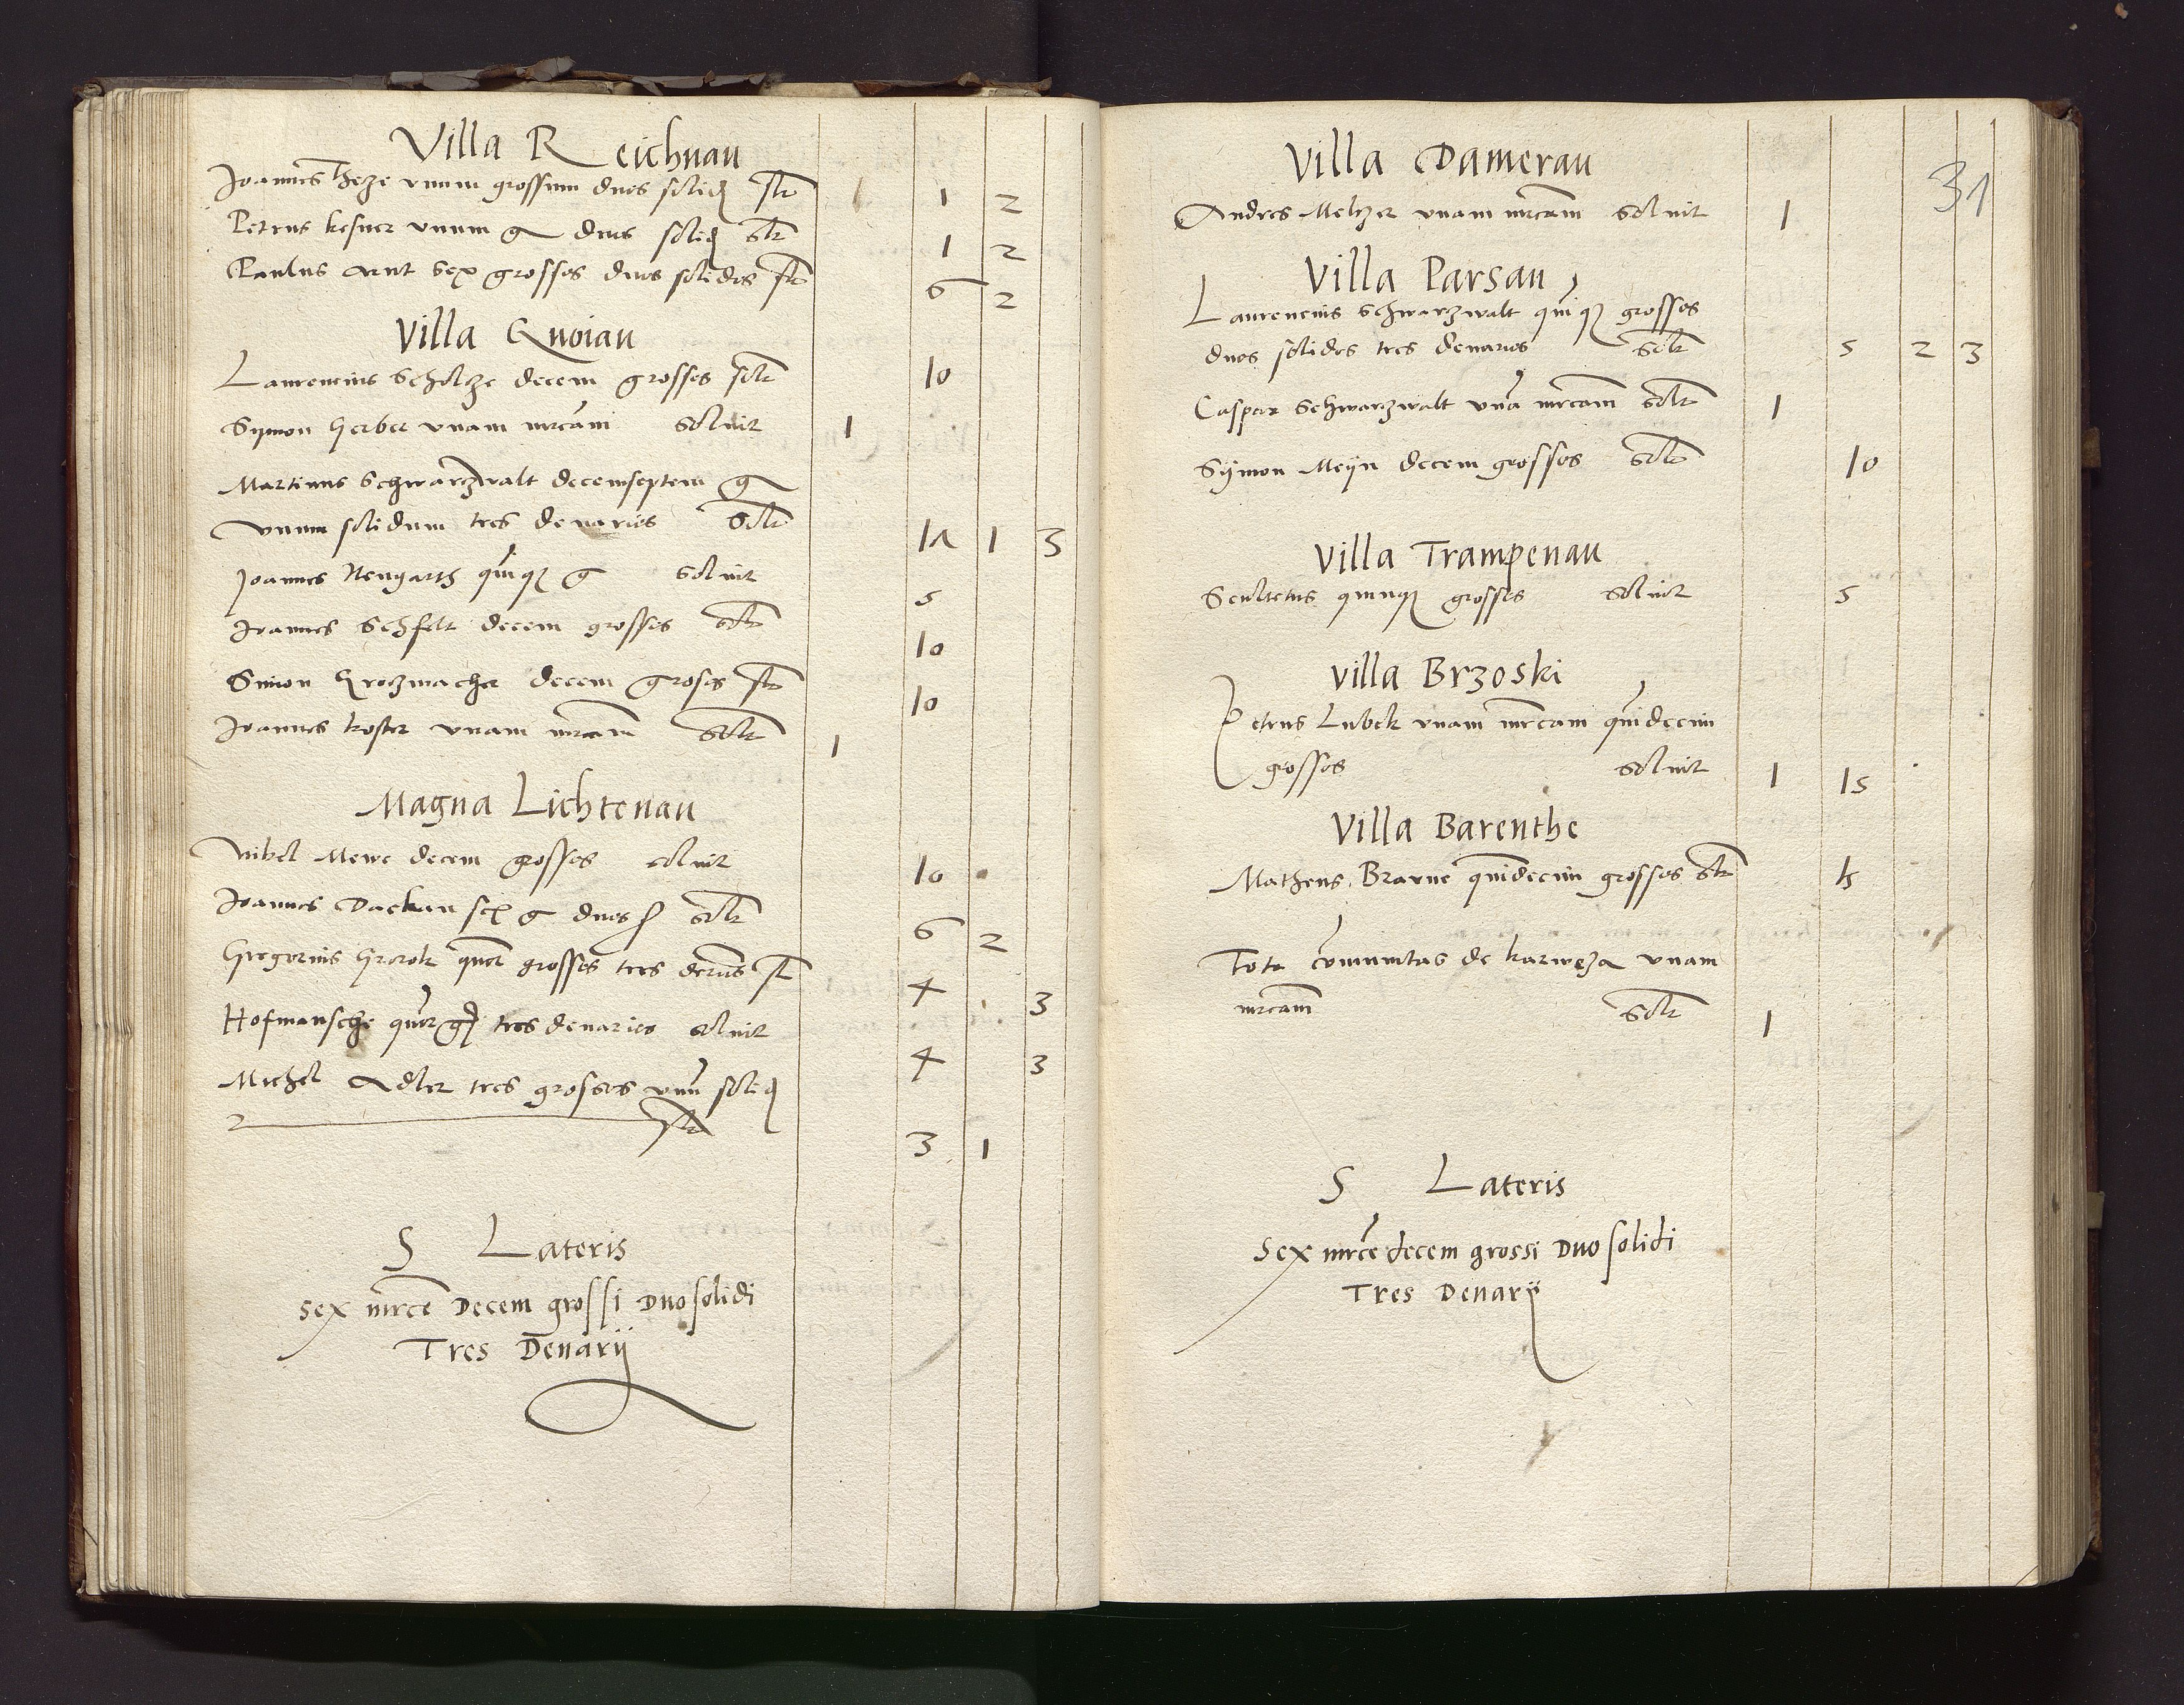 Villa Reichnau
Joannes Heze vnum grossum duos solid solt 1 2
Petrus kesner vnum g duos solid solt 1 2
Paulus Arnt sex grossos duos solidos solt 6 2
Villa Quoiau
Laurencius Scholze decem grossos solt 10
Symon Gerber vnam mrcam soluit 1
Martinus Schwarzwalt decemseptem g
vnum solidum tres denarios solt 17 1 3
Joannes Neugarth quiqz g soluit 5
Joannes Schfelt decem grossos solt 10
Simon Grozmacher decem grosos solt 10
Joannes koster vnam mrcam solt 1
Magna Lichtenau
Mewe decem grossos soluit 10
Joannes Dackau sex g duos s solt 6 2
Gregorius quor grossos tres denarios solt 4 3
Hofmansche quor g tres denarios soluit 4 3
Michel Adler tres grossos vnu solid
solt 3 1
S Lateris
Sex mrce Decem grossi Duo solidi
Tres Denarij
31
Villa Damerau
Andres Melzer vnam mrcam soluit 1
Villa Parsau
Laurencius Schwarzwalt quiqz grossos
duos solidos tres denarios solt 5 2 3
Caspar Schwarzwalt vna mrcam solt 1
Symon Meyn decem grossos solt 10
Villa Trampenau
Scultetus quinqz grossos soluit 5
Villa Brzoski
Petrus Lubek vnam mrcam quidecim
grossos soluit 1 15
Villa Barenthe
Matheus Brawne quidecim grossos solt 15
Tota comunitas de karweza vnam
mrcam solt 1
S Lateris
Sex mrce decem grossi Duo solidi
Tres Denarij